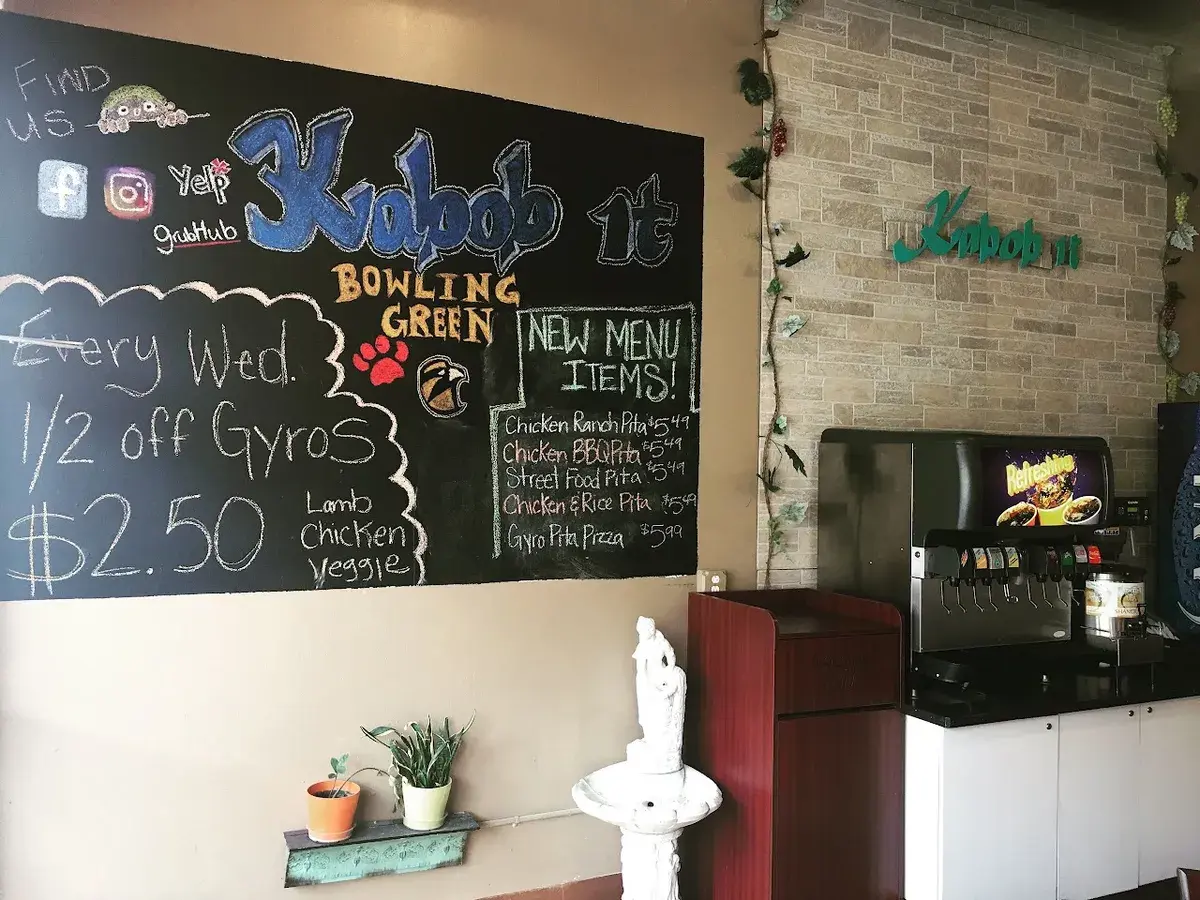 FIND
US
f
Yelp
GrubHub
Kabob it
BOWLING
GREEN
Every Wed.
1/2 off Gyros
$2.50
Lamb
Chicken
Veggie
NEW MENU
ITEMS!
Chicken Ranch Pita $5.49
Chicken BBQ Pita $5.49
Street Food Pita $5.49
Chicken & Rice Pita $5.49
Gyro Pita Pizza $5.99
Kabob it
Refreshing